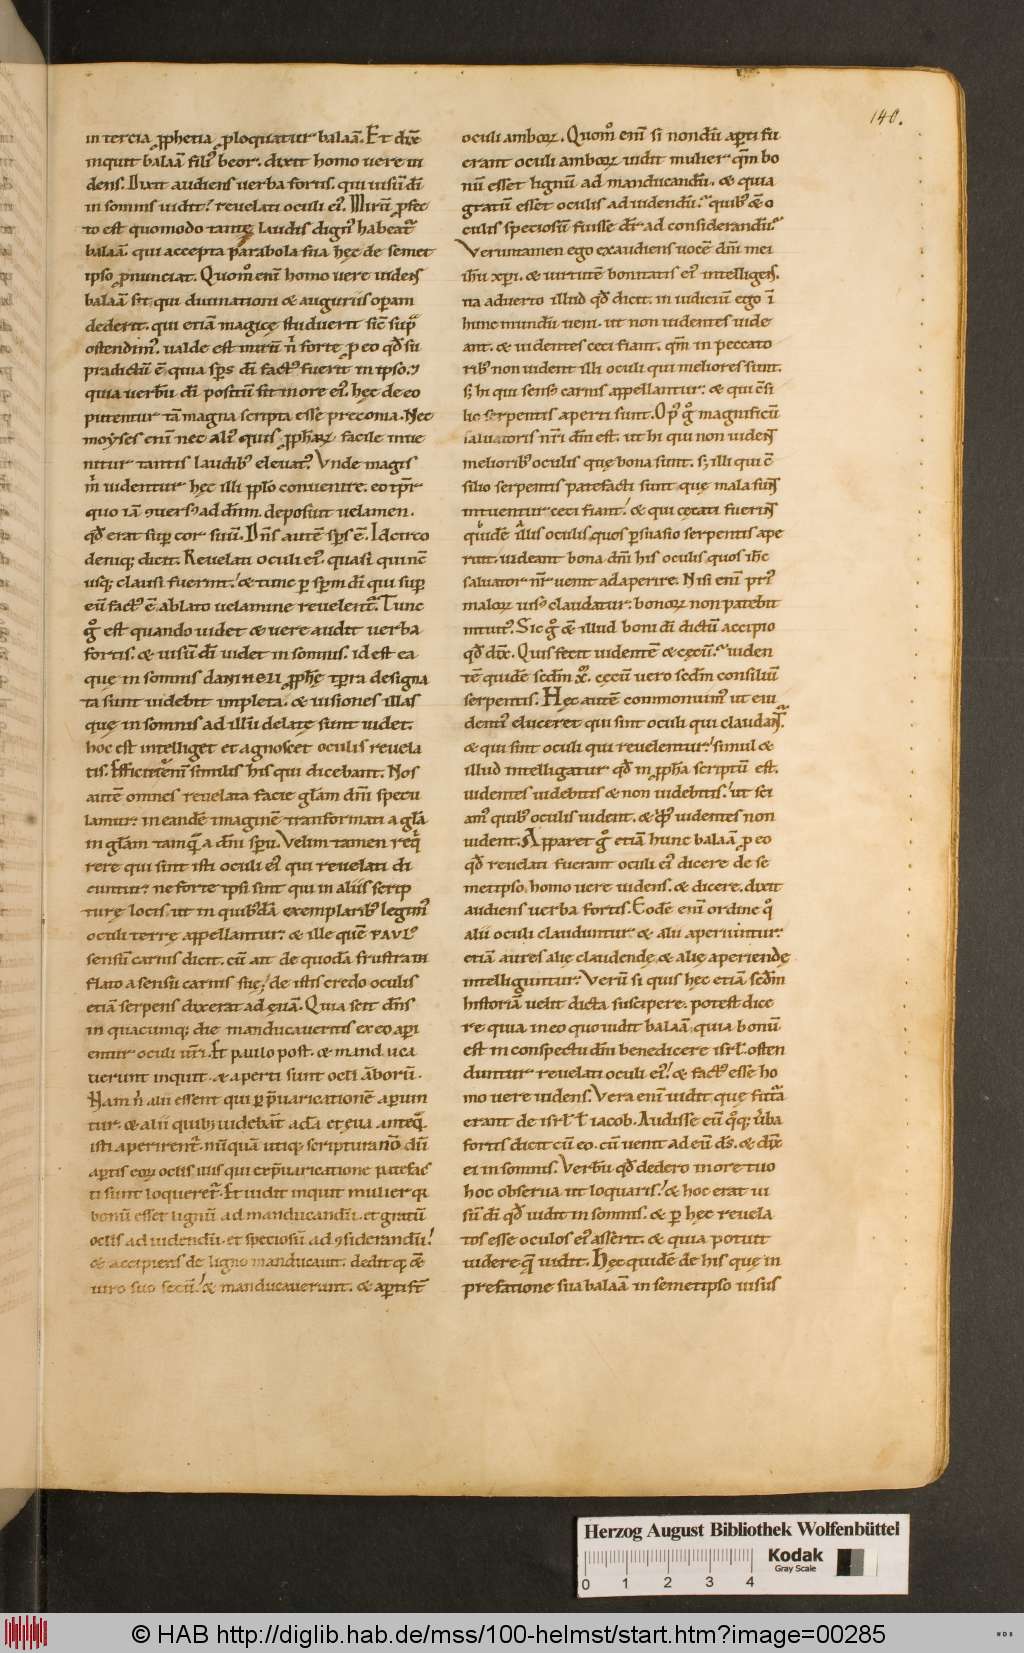 140.
in tercia ꝓphetia ꝓloquatur balaā. Et dix̄
inquit balaā fili⁹ beor. dixit homo uere ui
dens. Dixit audiens uerba fortis. qui uisū dī
in somnis uidit. reuelati oculi ei⁹. Mirū ꝓfec
to est quomodo tantę laudis dign⁹ habeat᷑
balaā. qui accepta parabola sua hęc de semet
ipso ꝓnunciat. Quom̄ eni homo uere uidens
balaā sit, qui diuinationi & auguriis oꝑam
dederit. qui etiā magicę studuerit sic̄ sup̄
ostendim⁹. ualde est mirū n̄ forte ꝓ eo qd̄ su
pradictū ē, quia sp̄s dī fact⁹ fuerit in ipso. ⁊
quia uerbū dī positū sit in ore ei⁹. hęc de eo
putentur tā magna scripta esse preconia. Nec
moyses eni nec ali⁹ quis ꝓphaꝝ facile inue
nitur tantis laudib⁹ eleuat⁹. Vnde magis
m̄ uidentur hęc illi ꝓplo conuenire. eo tp̄r
quo iā ꝯuers⁹ ad dn̄m. deposuit uelamen.
qd̄ erat suꝑ cor suū. Dn̄s autē sp̄s ē. Idcirco
deniq; dicit. Reuelati oculi ei⁹. quasi qui nc̄
usq; clausi fuerint. & tunc ꝑ sp̄m dī qui suꝑ
eū fact⁹ ē ablato uelamine reuelent᷑. Tunc
g̊ est quando uidet & uere audit uerba
fortis. & uisū dī uidet in somnis. id est ea
quę in somnis danieli ꝓphę tp̄ra designa
ta sunt uidebit impleta. & uisiones illas
quę in somnis ad illū delatę sunt uidet.
hoc est intelliget et agnoscet oculis reuela
tis. Efficit᷑ enī similis his qui dicebant. Nos
autē omnes reuelata facie glām dn̄i specu
lamur. in eandē imaginē tranformati a glā
in glām tamq̄ a dn̄i sp̄u. Velim tamen req̄
rere qui sint isti oculi ei⁹ qui reuelati di
cuntur. ne forte ipsi sint qui in aliis scrip
turę locis. ut in quibdā exemplarib⁹ legim⁹
oculi terrę appellantur. & ille quē PAVL⁹
sensū carnis dicit. cū ait de quodā frustra in
flato a sensu carnis suę. de istis credo oculis
etiā serpens dixerat ad euā. Quia scit dn̄s
in quacunq; die manducaueritis ex eo aꝑi
entur oculi ur̄i. Et paulo post. & manduca
uerunt inquit. & aperti sunt ocl̄i āborū.
Nam n̄ alii essent qui ꝑ p̄uaricationē aꝑiun
tur. & alii quib; uidebāt adā et eua anteq̄
isti aperirent᷑. nūquā utiq; scriptura nō dū
aꝑtis eoꝝ oclīs illis qui ex p̄uaricatione patefac
ti sunt loqueret᷑. Et uidit inquit mulier q
bonū esset lignū ad manducandū. et gratū
oclīs ad uidendū. et speciosū ad ꝯsiderandū.
& accipiens de ligno manducauit. dedit q; &
uiro suo secū. & manducauerunt. & aꝑti st̄
oculi amboꝝ. Quom̄ eni si nondū aꝑti fu
erant oculi amboꝝ uidit mulier qm̄ bo
nū esset lignū ad manducandū. & quia
gratū esset oculis ad uidendū. quib⁹ & o
culis speciosū fuisse dr̄ ad considerandū.
Veruntamen ego exaudiens uocē dn̄i mei
ih̄u xp̄i. & uirtutē bonitatis ei⁹ intelligens.
na aduerto illud qd̄ dicit. in iudiciū ego ī
hunc mundū ueni. ut non uidentes uide
ant. & uidentes ceci fiant. qm̄ in peccato
rib⁹ non uident illi oculi qui meliores sunt.
s; hi qui sens⁹ carnis appellantur. & qui c̄si
lio serpentis aperti sunt. Op⁹ g̊ magnificū
saluatoris nr̄i dm̄ est. ut hi qui non uident
meliorib⁹ oculis quę bona sunt. s; illi qui c̄
silio serpentis patefacti sunt quę mala sunt
intuentur ceci fiant. & qui cęcati fuerint
quidē illis oculis, quos ꝑsuasio serpentis ape
ruit. uideant bona dn̄i his oculis quos ih̄c
saluator nr̄ uenit ad aperire. Nisi enī pri⁹
maloꝝ uis⁹ claudatur. bonoꝝ non patebit
intuit⁹. Sic g̊ & illud boni dī dictū accipio
qd̄ dix̄. Quis fecit uidentē & cęcū. uiden
tē quidē scd̄m xp̄. cęcū uero scd̄m consiliū
serpentis. Hęc autē commonuim⁹ ut eui
denti⁹ eluceret qui sint oculi qui claudant᷑.
& qui sint oculi qui reuelentur. simul &
illud intelligatur qd̄ in ꝓpha scriptū est.
uidentes uidebitis & non uidebitis. ut sci
am⁹ quib⁹ oculis uident. & qb⁹ uidentes non
uident. Apparet g̊ etiā hunc balaā ꝓ eo
qd̄ reuelati fuerant oculi ei⁹ dicere de se
metipso, homo uere uidens. & dicere. dixit
audiens uerba fortis. Eodē enī ordine q̊
alii oculi clauduntur & alii aperiuntur.
etiā aures alię claudendę & alię aperiendę
intelliguntur. Verū si quis hęc etiā scd̄m
historiā uelit dicta suscipere. potest dice
re quia in eo quo uidit balaā, quia bonū
est in conspectu dn̄i benedicere isrl̄. osten
duntur reuelati oculi ei⁹. & fact⁹ esse ho
mo uere uidens. Vera enī uidit quę futura
erant de isrl̄ l̄ iacob. Audisse eū q̊q; uerba
fortis dicit cū eo. cū uenit ad eū dś. & dix̄
ei in somnis. Verbū qd̄ dedero in ore tuo
hoc obserua ut loquaris. & hoc erat ui
sū dī qd̄ uidit in somnis. & ꝑ hęc reuela
tos esse oculos ei⁹ asserit. & quia potuit
uidere q̄ uidit. Hęc quidē de his quę in
prefatione sua balaā in semetipso uisus
Herzog August Bibliothek Wolfenbüttel
Kodak
Gray Scale
0 1 2 3 4
© HAB http://diglib.hab.de/mss/100-helmst/start.htm?image=00285